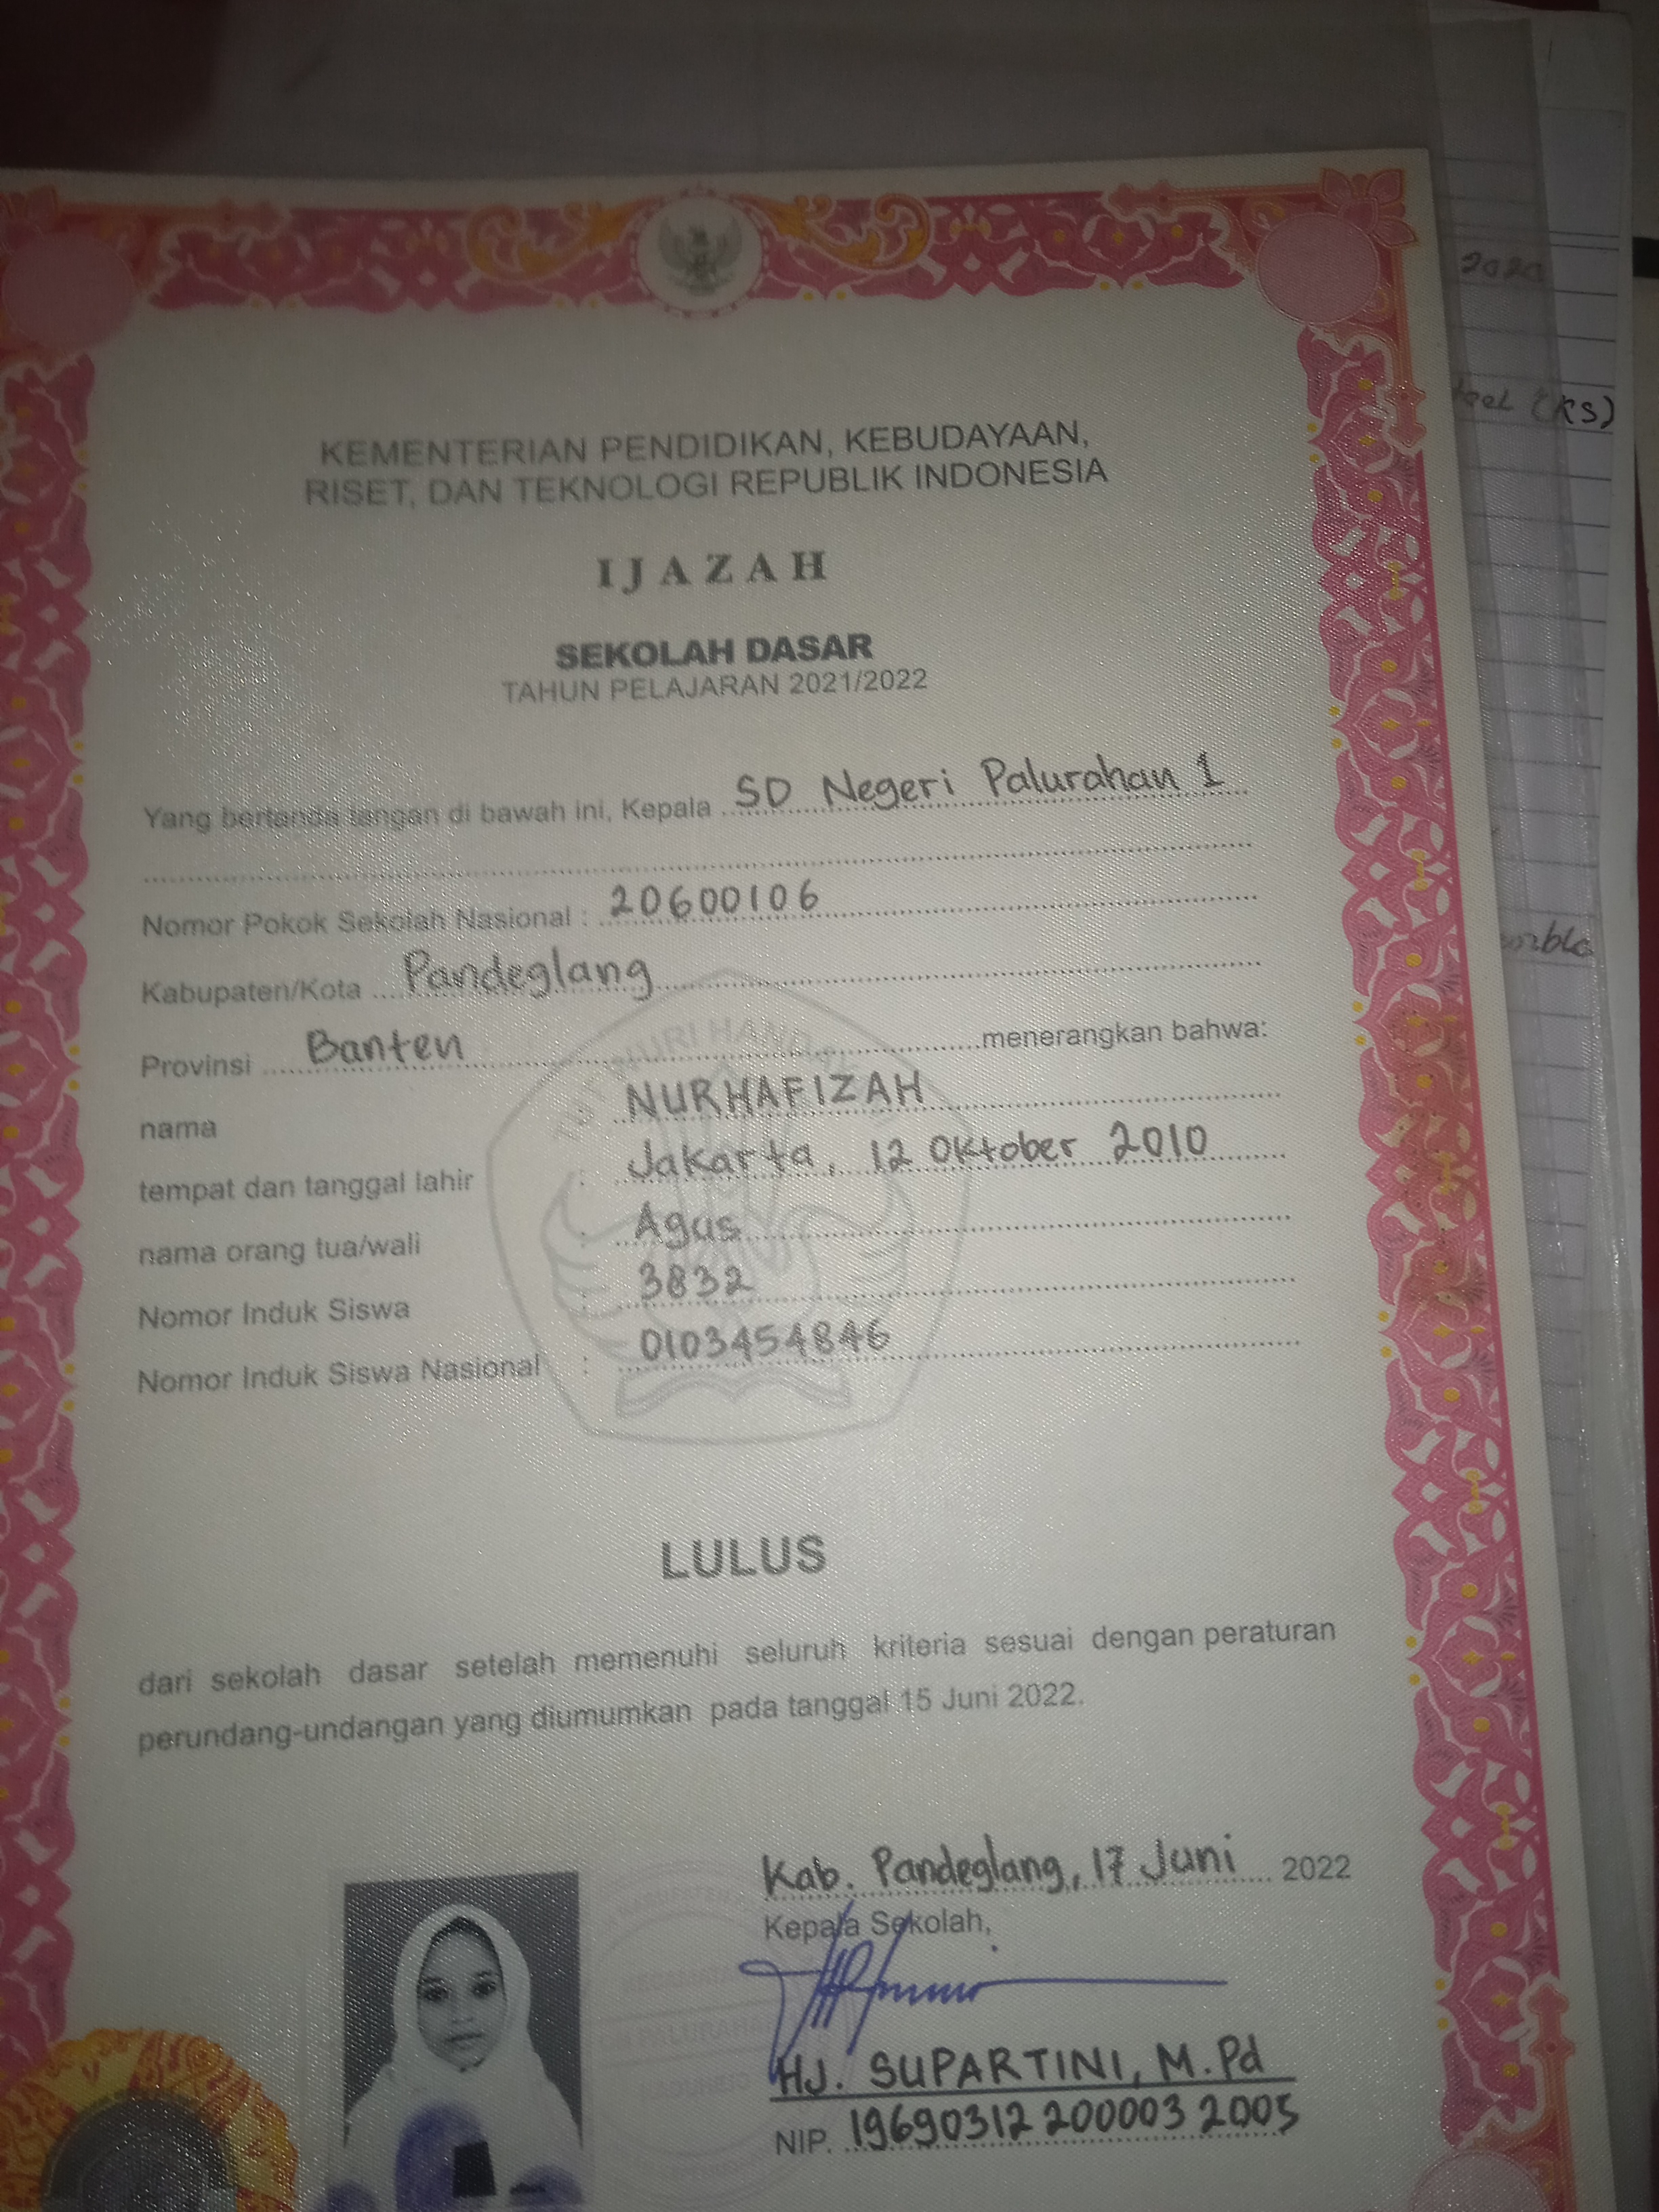 KEMENTERIAN PENDIDIKAN, KEBUDAYAAN,
RISET, DAN TEKNOLOGI REPUBLIK INDONESIA
IJAZAH
SEKOLAH DASAR
TAHUN PELAJARAN 2021/2022
Yang bertanda tangan di bawah ini, Kepala SD Negeri Palurahan 1
Nomor Pokok Sekolah Nasional : 20600106
Kabupaten/Kota Pandeglang
Provinsi Banten menerangkan bahwa:
nama : NURHAFIZAH
tempat dan tanggal lahir : Jakarta, 12 Oktober 2010
nama orang tua/wali : Agus
Nomor Induk Siswa : 3832
Nomor Induk Siswa Nasional : 0103454846
LULUS
dari sekolah dasar setelah memenuhi seluruh kriteria sesuai dengan peraturan
perundang-undangan yang diumumkan pada tanggal 15 Juni 2022.
Kab. Pandeglang, 17 Juni 2022
Kepala Sekolah,
HJ. SUPARTINI, M.Pd
NIP. 19690312 200003 2005
2020
(KS)